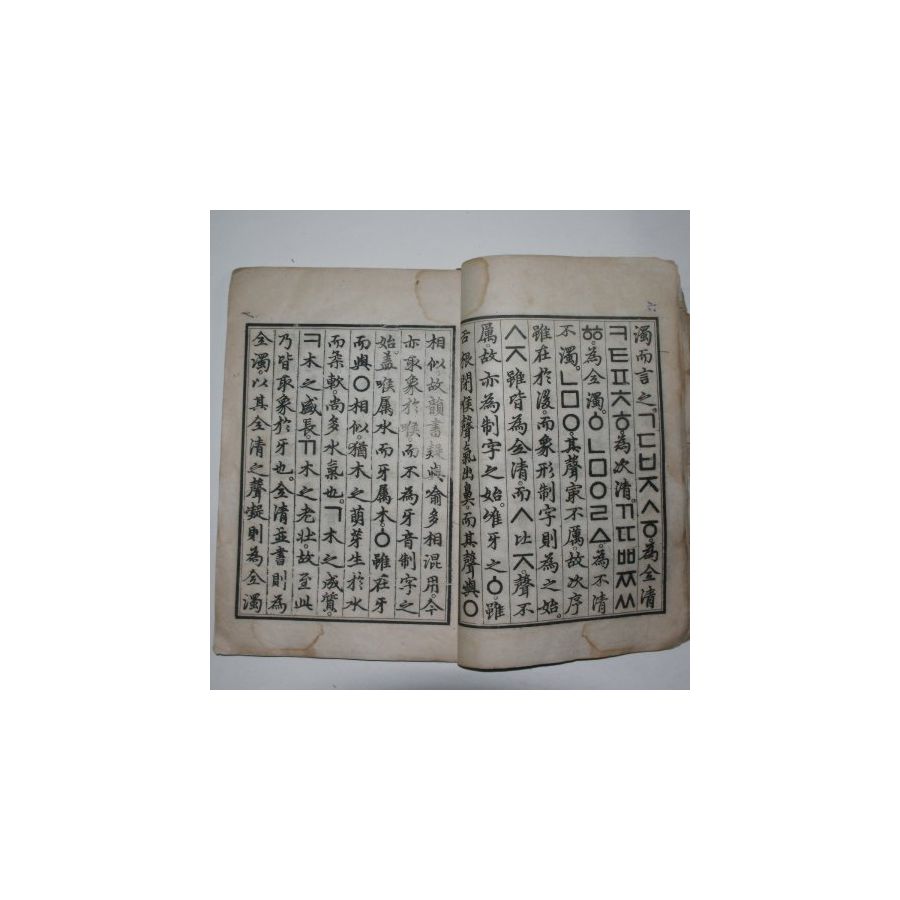 濁而言之。ㄱㄷㅂㅈㅅㆆ為全清
ㅋㅌㅍㅊㅎ。為次清。ㄲㄸㅃㅉㅆ
ㆅ。為全濁。ㆁㄴㅁㅇㄹㅿ。為不清
不濁。ㄴㅁㅇ。其聲㝡不厲。故次序
雖在於後。而象形制字則為之始。
ㅅㅈ雖皆為全清。而ㅅ比ㅈ。聲不
厲。故亦為制字之始。唯牙之ㆁ。雖
舌根閉喉聲氣出鼻。而其聲與ㅇ
相似。故韻書疑與喻多相混用。今
亦取象於喉。而不為牙音制字之
始。盖喉屬水而牙屬木。ㆁ雖在牙
而與ㅇ相似。猶木之萌芽生於水
而柔軟。尚多水氣也。ㄱ木之成質。
ㅋ木之盛長。ㄲ木之老壯。故至此
乃皆取象於牙也。全清並書則為
全濁。以其全清之聲凝則為全濁